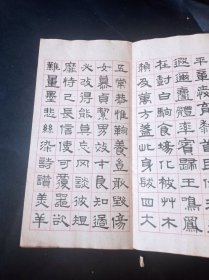 平章愛育黎首臣伏戎羌
遐邇壹體率賓歸王鳴鳳
在樹白駒食場化被草木
賴及萬方蓋此身髮四大
五常恭惟鞠養豈敢毀傷
女慕貞絜男效才良知過
必改得能莫忘罔談彼短
靡恃己長信使可覆器欲
難量墨悲絲染詩讚羔羊